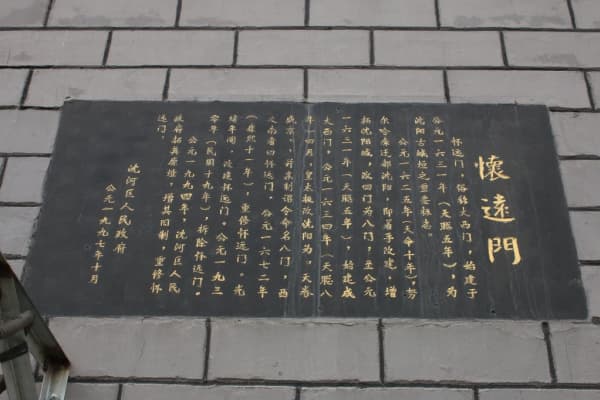 懷遠門
怀远门，俗称大西门，始建于
公元一六三一年（天聪五年），为
沈阳古城垣之重要标志。
公元一六二五年（天命十年），努
尔哈赤迁都沈阳，即着手改建、增
拓沈阳城，改四门为八门，至公元
一六三一年（天聪五年），始建成
大西门，公元一六三四年（天聪八
年）四月，皇太极改沈阳为"天眷
盛京"，并亲制谕令命名八门，西
之南者曰怀远门。公元一六七二年
（康熙十一年），重修怀远门。光
绪年间，改建怀远门。公元一九三
零年（民国十九年），拆除怀远门。
公元一九九四年，沈河区人民
政府拓其原墟，增其旧制，重修怀
远门。
沈河区人民政府
公元一九九七年十月